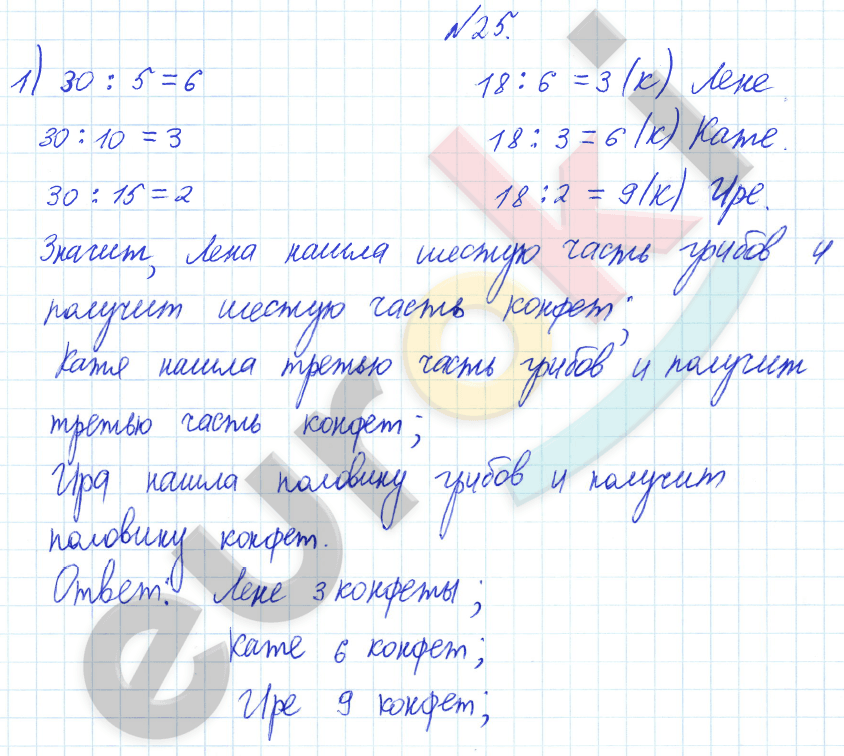 №25.
1) 30 : 5 = 6 18 : 6 = 3 (к) Лене.
30 : 10 = 3 18 : 3 = 6 (к) Кате.
30 : 15 = 2 18 : 2 = 9 (к) Ире.
Значит, Лена нашла шестую часть грибов и
получит шестую часть конфет;
Катя нашла третью часть грибов и получит
третью часть конфет;
Ира нашла половину грибов и получит
половину конфет.
Ответ: Лене 3 конфеты;
Кате 6 конфет;
Ире 9 конфет;
euroki